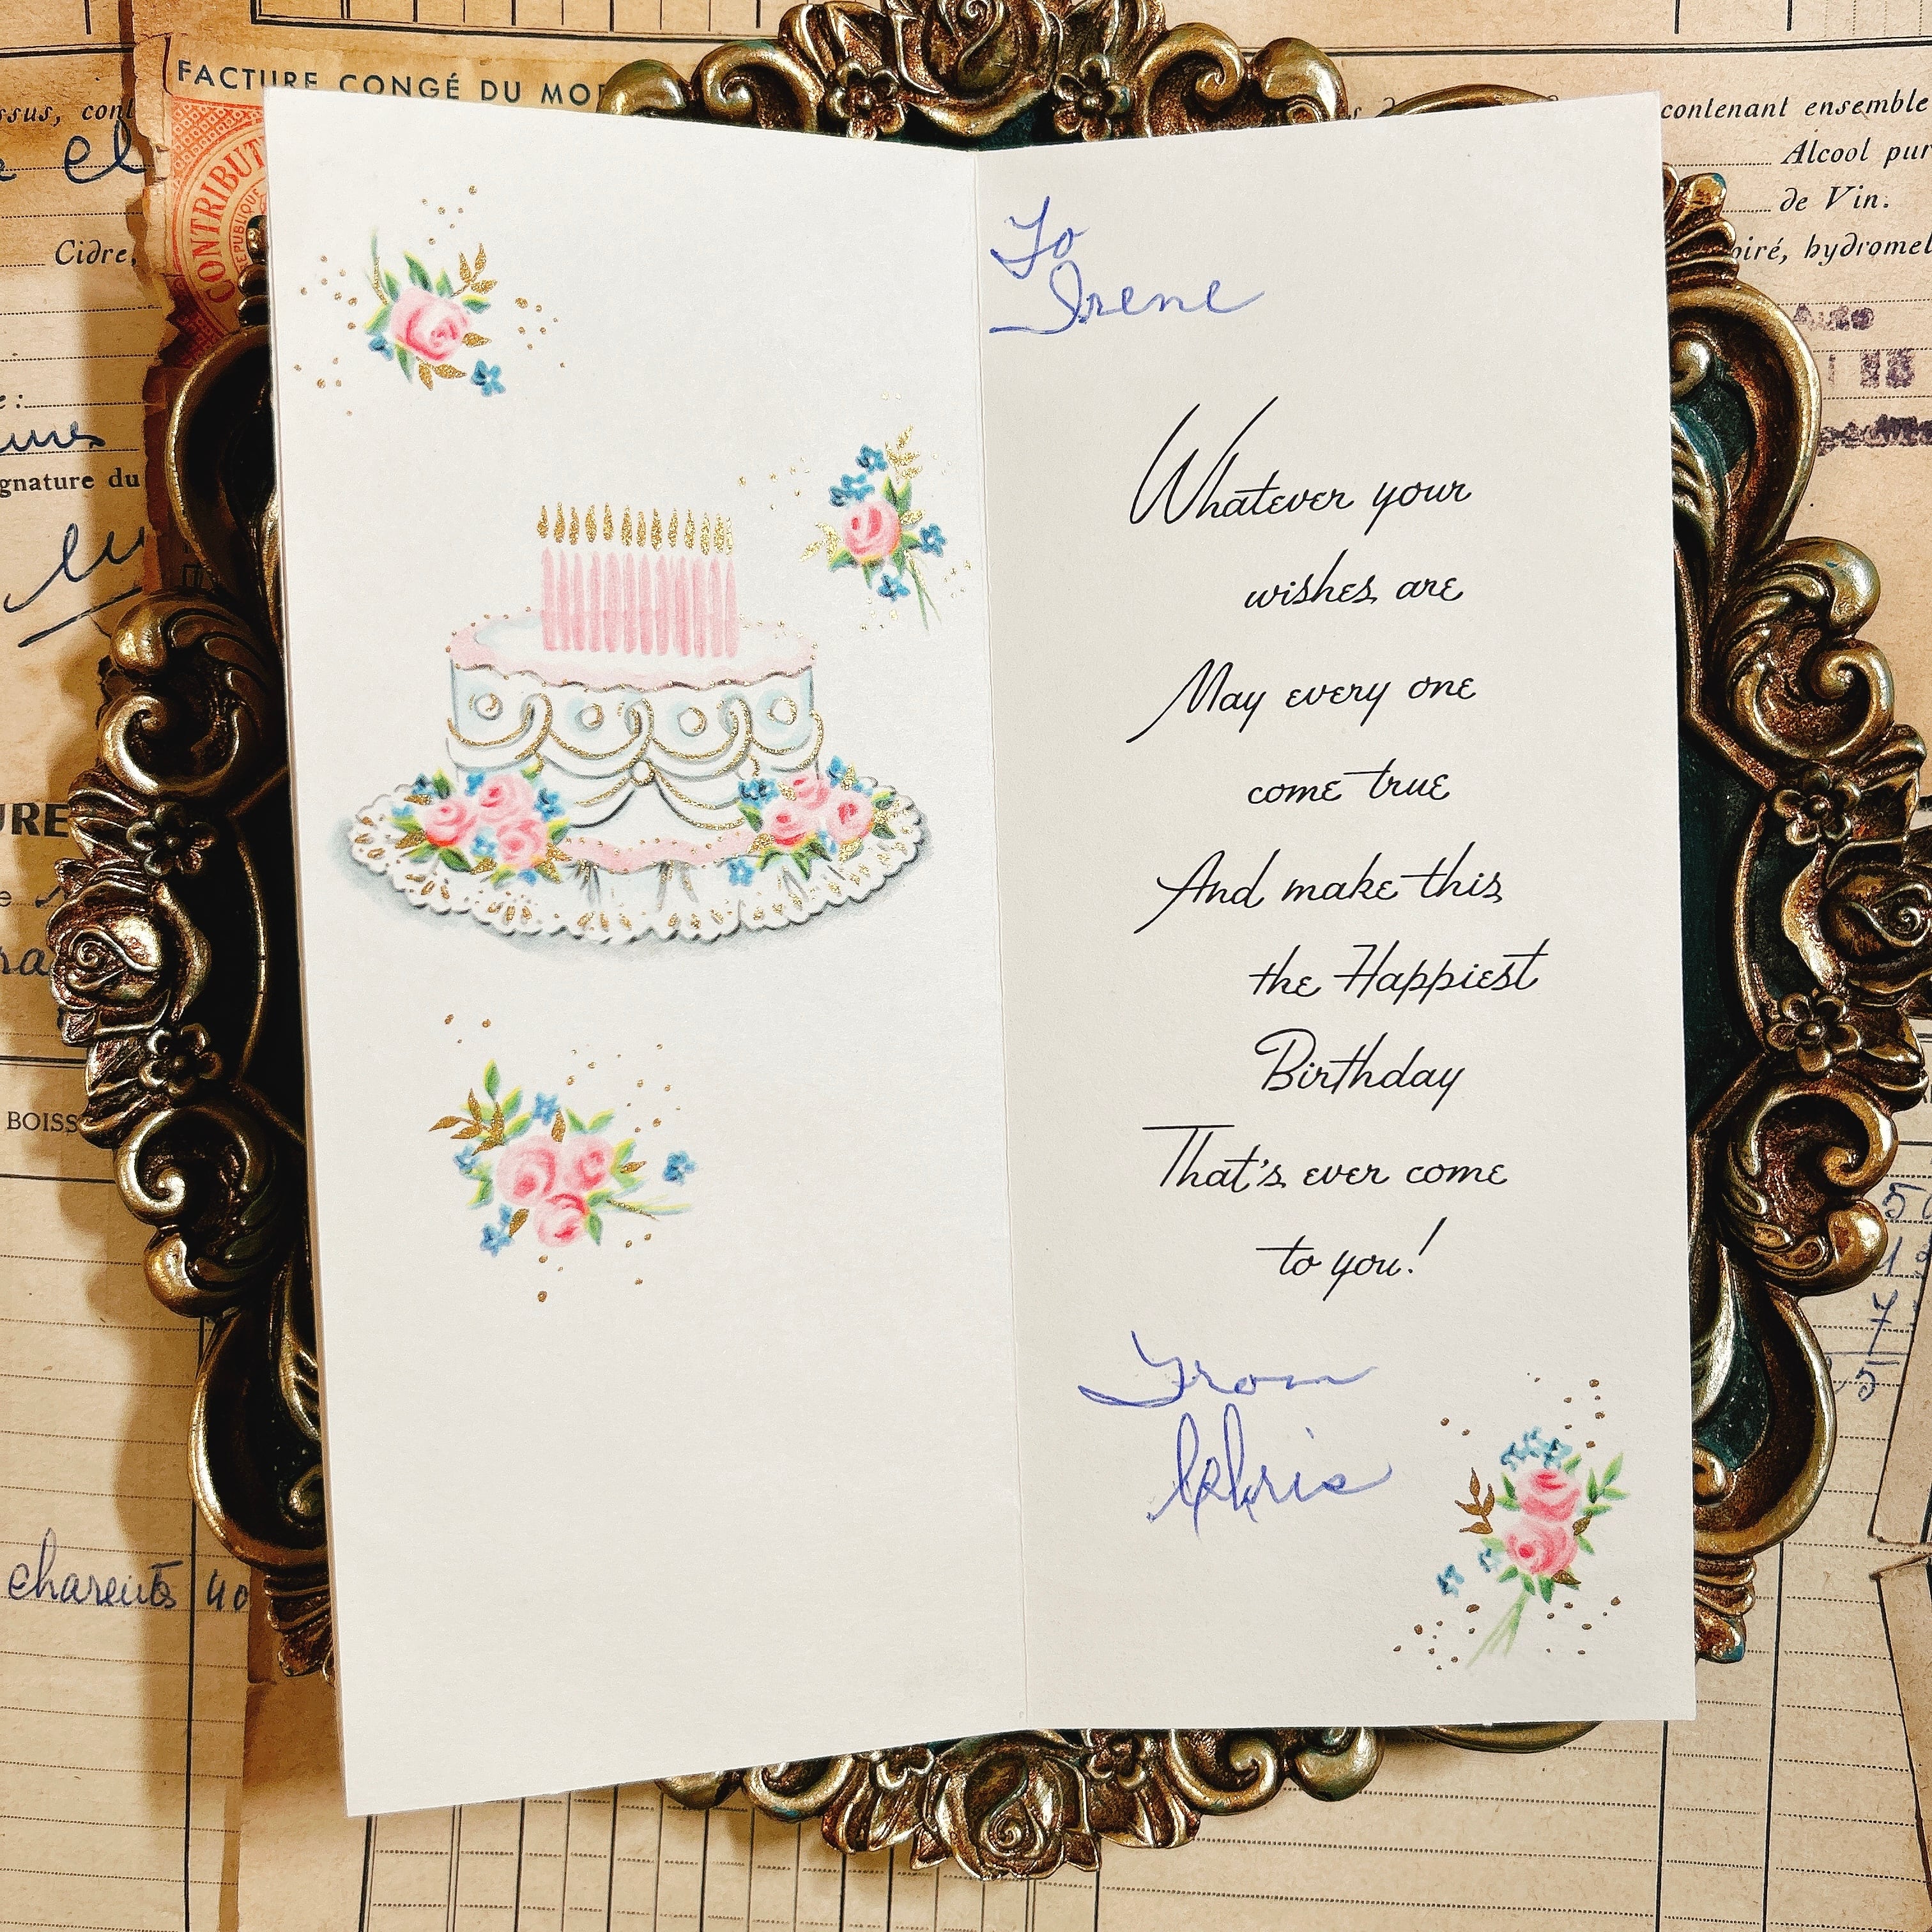 FACTURE CONGÉ DU
CONTRIBUT
Cidre,
gnature du
contenant ensemble
Alcool pur
de Vin.
hydromel
BOISS
To
Irene
Whatever your
wishes are
May every one
come true
And make this
the Happiest
Birthday
That's ever come
to you!
From
Chris